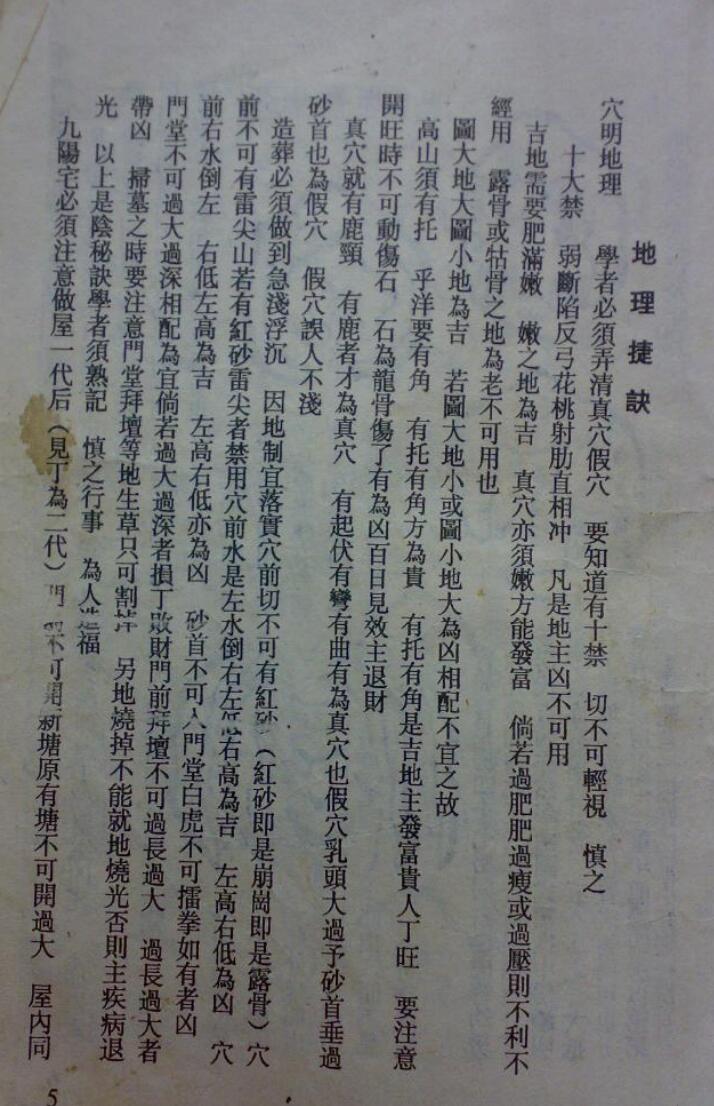 地理捷訣
穴明地理　學者必須弄清真穴假穴　要知道有十禁　切不可輕視　慎之
十大禁　弱斷陷反弓花桃射肋直相冲　凡是地主凶不可用
吉地需要肥滿嫩　嫩之地為吉　真穴亦須嫩方能發富　倘若過肥肥過瘦或過壓則不利不
經用　露骨或牯骨之地為老不可用也
圖大地大圖小地為吉　若圖大地小或圖小地大為凶相配不宜之故
高山須有托　乎洋要有角　有托有角方為貴　有托有角是吉地主發富貴人丁旺　要注意
開旺時不可動傷石　石為龍骨傷了有為凶百日見效主退財
真穴就有鹿頸　有鹿者才為真穴　有起伏有彎有曲有為真穴也假穴乳頭大過予砂首垂過
砂首也為假穴　假穴誤人不淺
造葬必須做到急淺浮沉　因地制宜落實穴前切不可有紅砂（紅砂即是崩崗即是露骨）穴
前不可有雷尖山若有紅砂雷尖者禁用穴前水是左水倒右左低右高為吉　左高右低為凶　穴
前右水倒左　右低左高為吉　左高右低亦為凶　砂首不可入門堂白虎不可擂拳如有者凶
門堂不可過大過深相配為宜倘若過大過深者損丁敗財門前拜壇不可過長過大　過長過大者
帶凶　掃墓之時要注意門堂拜壇等地生草只可割掉　另地燒掉不能就地燒光否則主疾病退
光　以上是陰秘訣學者須熟記　慎之行事　為人造福
九陽宅必須注意做屋一代后（見丁為二代）門　不可開新塘原有塘不可開過大　屋內同
5